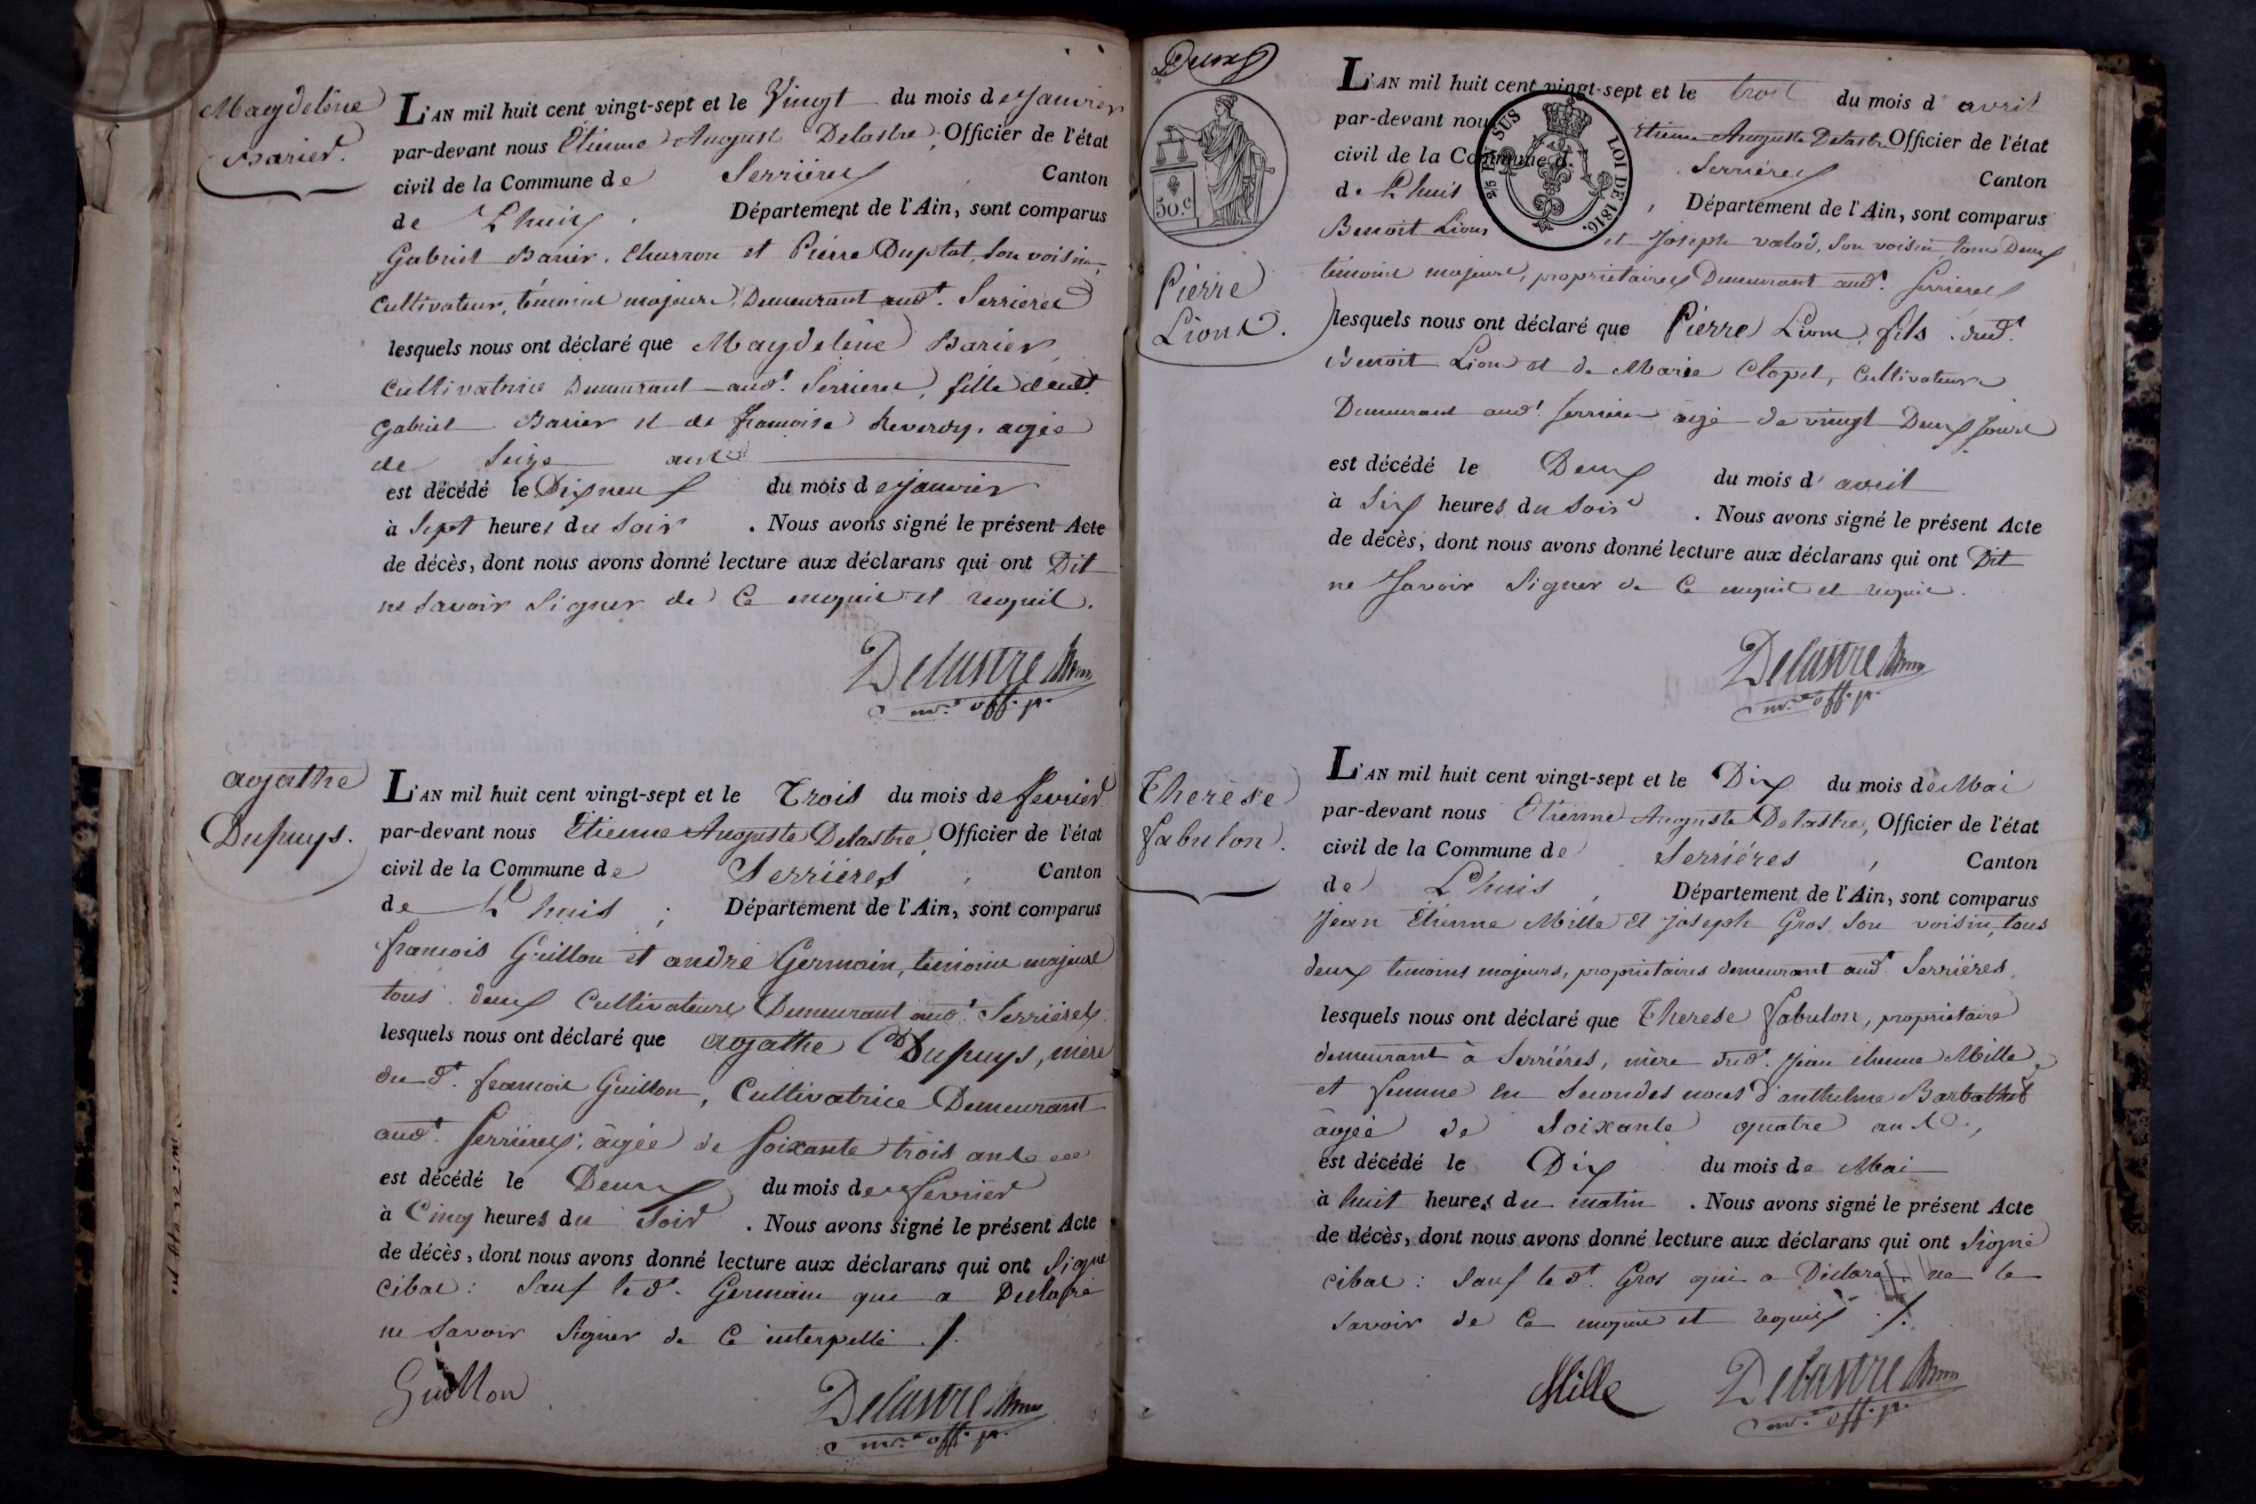 Magdeleine
Barier.
L'AN mil huit cent vingt-sept et le Vingt du mois de Janvier
par-devant nous Étienne August Delastre, Officier de l'état
civil de la Commune de Serrières, Canton
de Lhuis. Département de l'Ain, sont comparus
Gabriel Barier, Charron et Pierre Duplat, son voisin,
Cultivateur, témoins majeurs, Demeurant aud.t Serrieres
lesquels nous ont déclaré que Magdeleine Barier,
Cultivatrice Demeurant aud.t Serrieres, fille dudt.
Gabriel Barier et de francoise Reverdy, agée
de Seize ans
est décédé le Dixneuf du mois de Janvier
à Sept heures du Soir. Nous avons signé le présent Acte
de décès, dont nous avons donné lecture aux déclarans qui ont Dit
ne Savoir Signer de Ce enquis et requis.
Delastre
off. p.
agathe
Dupuys.
L'AN mil huit cent vingt-sept et le Trois du mois de fevrier
par-devant nous Étienne Auguste Delastre, Officier de l'état
civil de la Commune de Serrières, Canton
de Lhuis; Département de l'Ain, sont comparus
francois Guillon et andré Germain, temoins majeurs
tous deux Cultivateurs Demeurant aud.t Serriéres
lesquels nous ont déclaré que agathe Dupuys, mère
du d.t francois Guillon, Cultivatrice Demeurant
aud.t Serrieres, âgée de Soixante trois ans
est décédé le Deux du mois de fevrier
à Cinq heures du Soir. Nous avons signé le présent Acte
de décès, dont nous avons donné lecture aux déclarans qui ont Signé
cibas: Sauf le d.t Germain que a Declaré
ne Savoir Signer de Ce interpellé ./.
Guillon
Delastre
off. p.
Deux
50.c
EN SUS
LOI DE 1816.
Pierre
Lions.
L'AN mil huit cent vingt-sept et le trois du mois d'avril
par-devant nous Etienne Auguste Delastre Officier de l'état
civil de la Commune d. Serriéres Canton
de Lhuis, Département de l'Ain, sont comparus
Benoit Lions et Joseph valod, Son voisin, tous Deux
témoins majeurs, proprietaires Demeurant aud.t Serrieres
lesquels nous ont déclaré que Pierre Lions, fils dud.t
Benoit Lions et de Marie Clopet, Cultivateurs
Demeurant aud.t Serrieres agé de vingt Deux Jours
est décédé le Deux du mois d'avril
à Six heures du Soir. Nous avons signé le présent Acte
de décès, dont nous avons donné lecture aux déclarans qui ont Dit
ne Savoir Signer de Ce enquit et requis.
Delastre
off. p.
Therèse
fabulon.
L'AN mil huit cent vingt-sept et le Dix du mois de Mai
par-devant nous Etienne Auguste Delastre, Officier de l'état
civil de la Commune de Serriéres, Canton
de Lhuis, Département de l'Ain, sont comparus
Jean Étienne Mille et Joseph Gros Son voisin, tous
deux temoins majeurs, proprietaires demeurant aud.t Serriéres,
lesquels nous ont déclaré que Therese fabulon, proprietaire
demeurant à Serriéres, mère dud.t Jean etienne Mille,
et femme en Secondes noces d'anthelme Barbathot
âgée de Soixante quatre ans,
est décédé le Dix du mois de Mai
à huit heures du matin. Nous avons signé le présent Acte
de décès, dont nous avons donné lecture aux déclarans qui ont Signé
cibas: Sauf le d.t Gros qui a Déclaré ne le
Savoir de Ce enquis et requis ./.
Mille
Delastre
off. p.